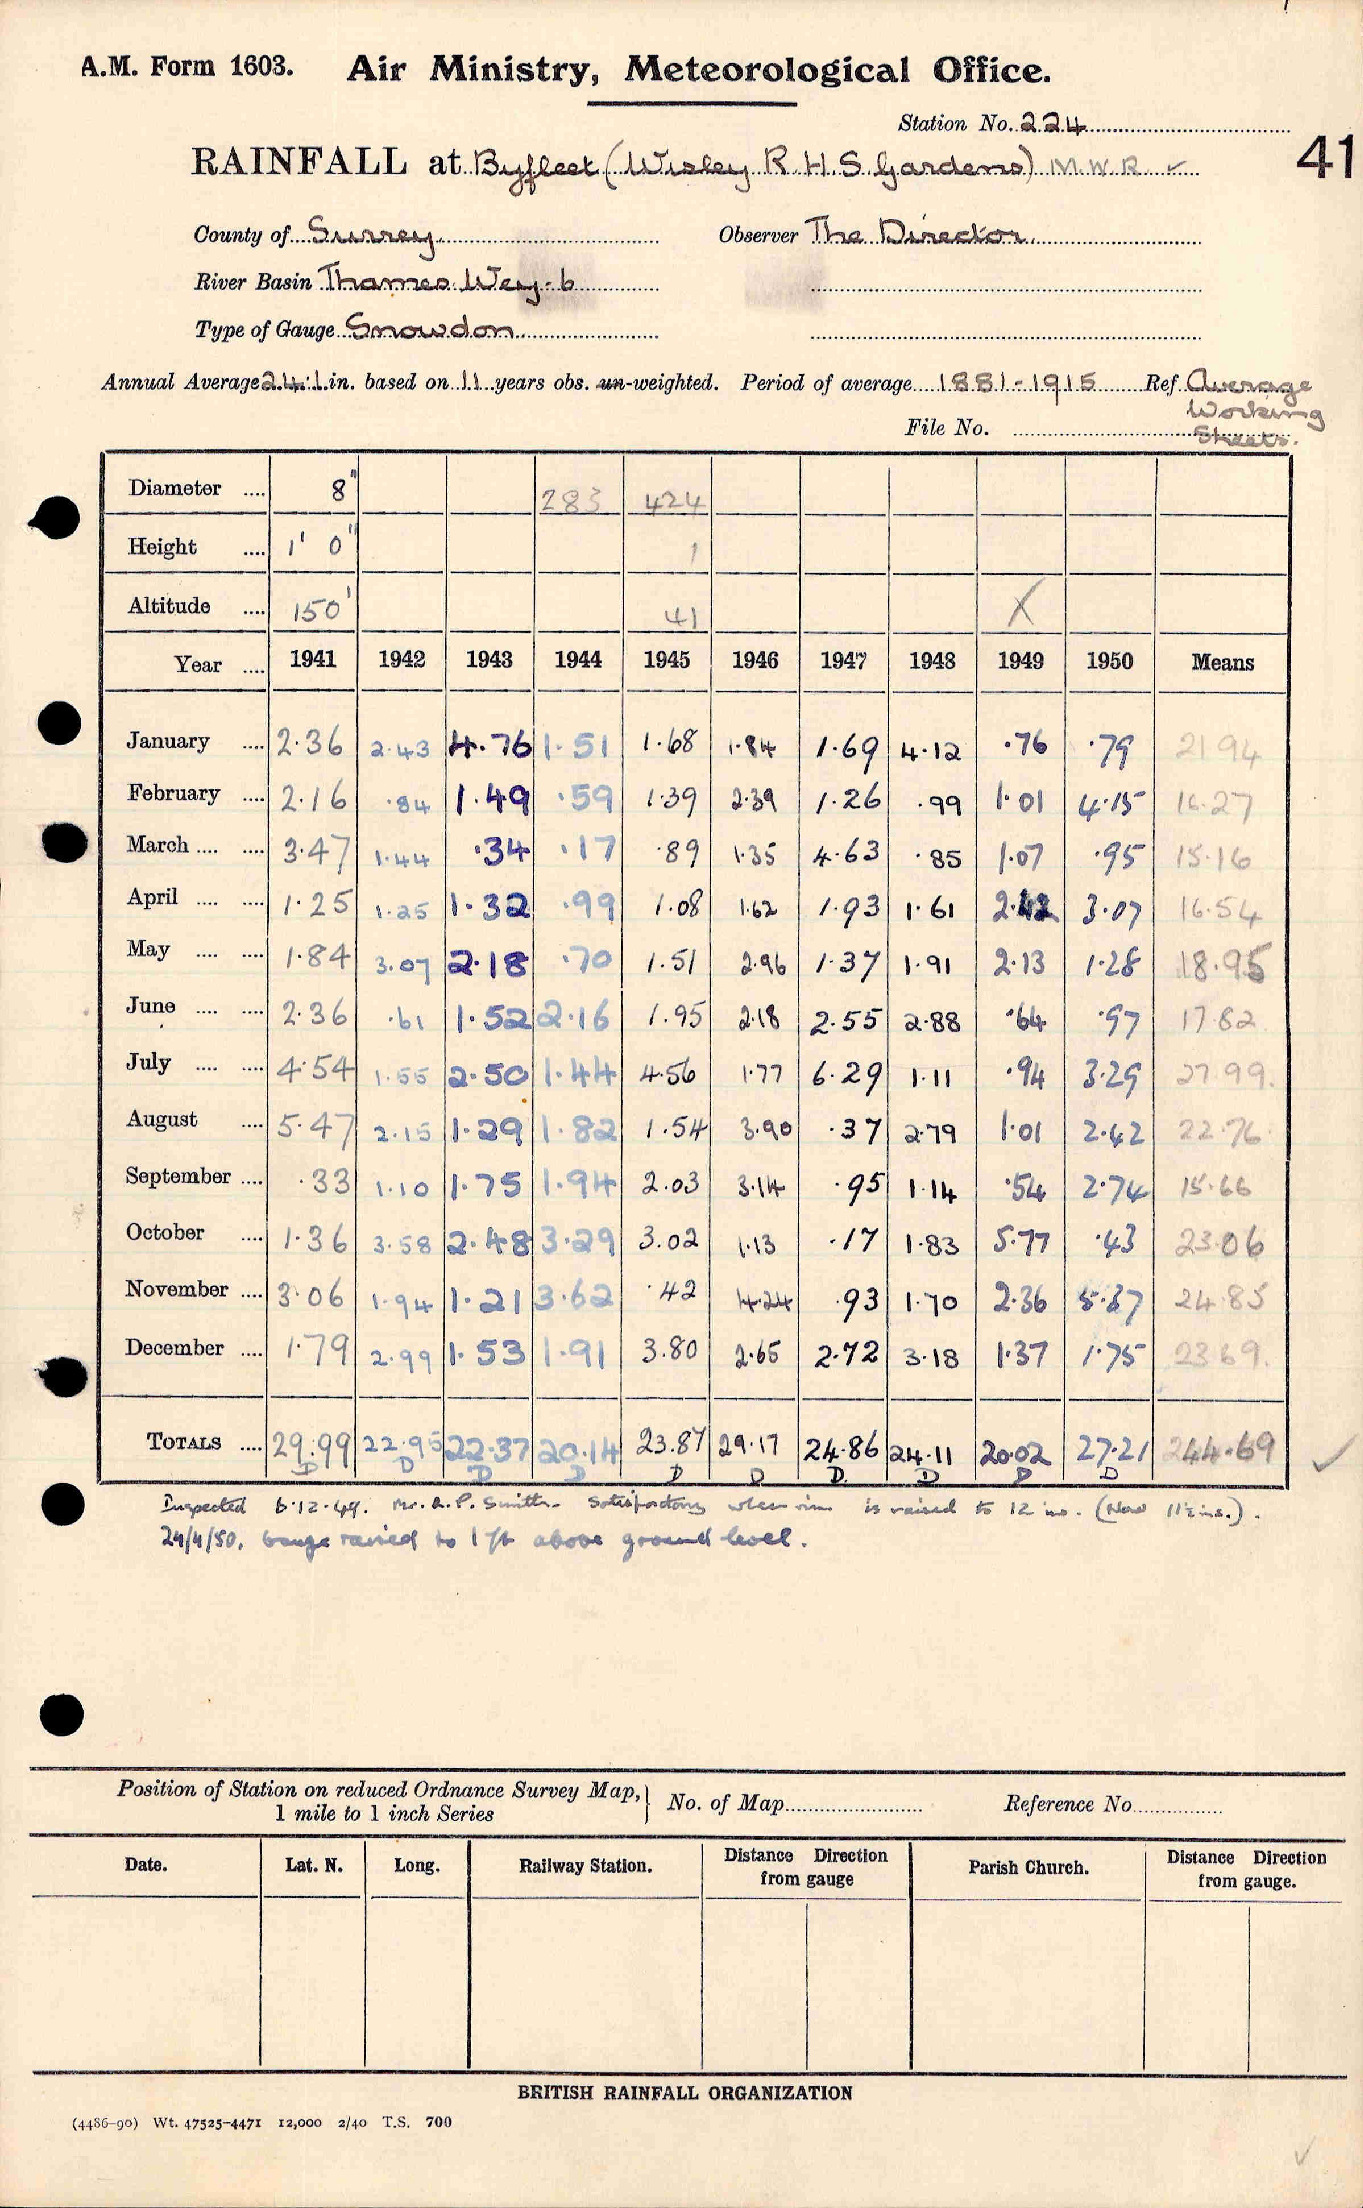 A.M. Form 1603. Air Ministry, Meteorological Office.
Station No. 224
RAINFALL at Byfleet (Wisley R.H.S. Gardens) M.W.R. ✓
41
County of Surrey Observer The Director
River Basin Thames Wey-6
Type of Gauge Snowdon
Annual Average 24.1 in. based on 11 years obs. un-weighted. Period of average 1881-1915 Ref. Average Working Sheets.
File No.
Diameter .... 8" 283 424
Height .... 1' 0" 1
Altitude .... 150' 41 X
Year .... 1941 1942 1943 1944 1945 1946 1947 1948 1949 1950 Means
January .... 2.36 2.43 4.76 1.51 1.68 1.84 1.69 4.12 .76 .79 21.94
February .... 2.16 .84 1.49 .59 1.39 2.39 1.26 .99 1.01 4.15 16.27
March .... .... 3.47 1.44 .34 .17 .89 1.35 4.63 .85 1.07 .95 15.16
April .... .... 1.25 1.25 1.32 .99 1.08 1.62 1.93 1.61 2.42 3.07 16.54
May .... .... 1.84 3.07 2.18 .70 1.51 2.96 1.37 1.91 2.13 1.28 18.95
June .... .... 2.36 .61 1.52 2.16 1.95 2.18 2.55 2.88 .64 .97 17.82
July .... .... 4.54 1.55 2.50 1.44 4.56 1.77 6.29 1.11 .94 3.29 27.99.
August .... 5.47 2.15 1.29 1.82 1.54 3.90 .37 2.79 1.01 2.42 22.76
September .... .33 1.10 1.75 1.94 2.03 3.14 .95 1.14 .54 2.74 15.66
October .... 1.36 3.58 2.48 3.29 3.02 1.13 .17 1.83 5.77 .43 23.06
November .... 3.06 1.94 1.21 3.62 .42 4.24 .93 1.70 2.36 5.37 24.85
December .... 1.79 2.99 1.53 1.91 3.80 2.65 2.72 3.18 1.37 1.75 23.69.
TOTALS .... 29.99 22.95 22.37 20.14 23.87 29.17 24.86 24.11 20.02 27.21 244.69 ✓
D D D D D D D. D D D
Inspected 6.12.49. Mr. A.P. Smith. Satisfactory when rim is raised to 12 ins. (Now 11½ ins.).
24/4/50. Gauge raised to 1 ft above ground level.
Position of Station on reduced Ordnance Survey Map, 1 mile to 1 inch Series } No. of Map Reference No.
Date. Lat. N. Long. Railway Station. Distance Direction from gauge Parish Church. Distance Direction from gauge.
BRITISH RAINFALL ORGANIZATION
(4486-90) Wt. 47525-4471 12,000 2/40 T.S. 700
✓